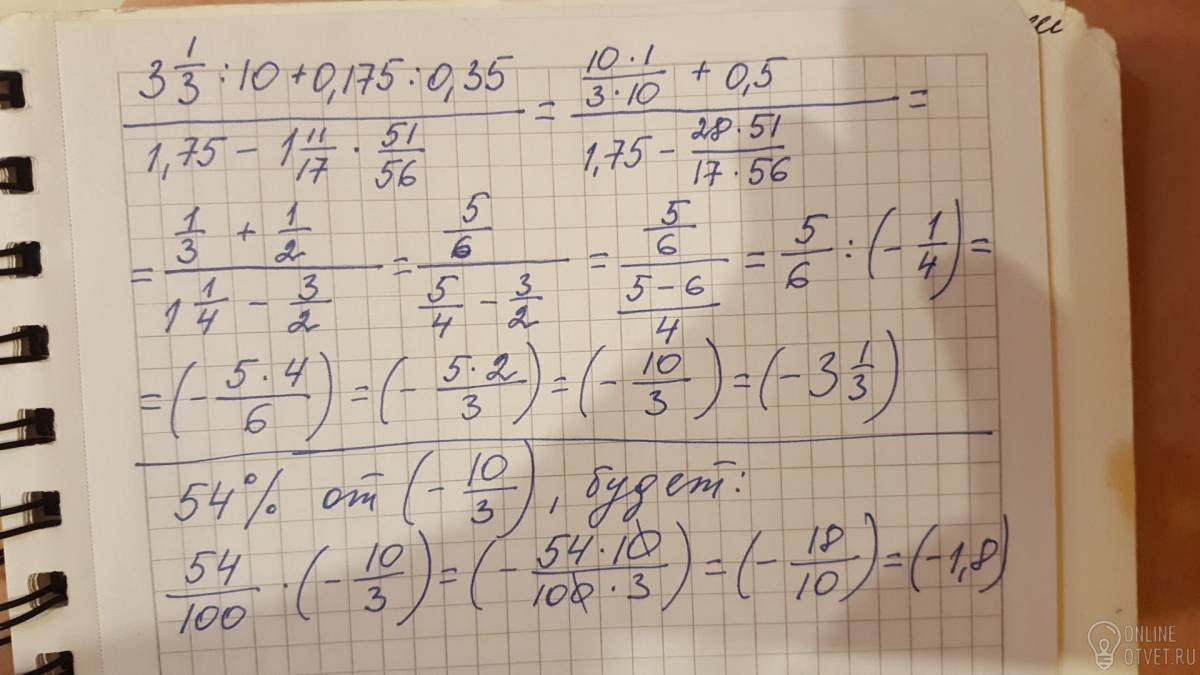 (3 1/3 : 10 + 0,175 : 0,35)/(1,75 - 1 11/17 · 51/56) = ((10 · 1)/(3 · 10) + 0,5)/(1,75 - (28 · 51)/(17 · 56)) =
= (1/3 + 1/2)/(1 1/4 - 3/2) = (5/6)/(5/4 - 3/2) = (5/6)/((5 - 6)/4) = 5/6 : (- 1/4) =
= (- (5 · 4)/6) = (- (5 · 2)/3) = (- 10/3) = (- 3 1/3)
54% от (- 10/3), будет:
54/100 · (- 10/3) = (- (54 · 10)/(100 · 3)) = (- 18/10) = (-1,8)
ONLINE
OTVET.RU